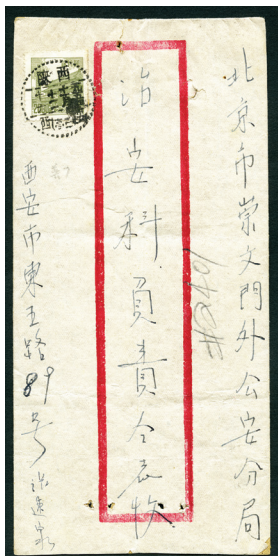 北京市崇文門外公安分局
治安科負責仝志收
西安市東五路89号